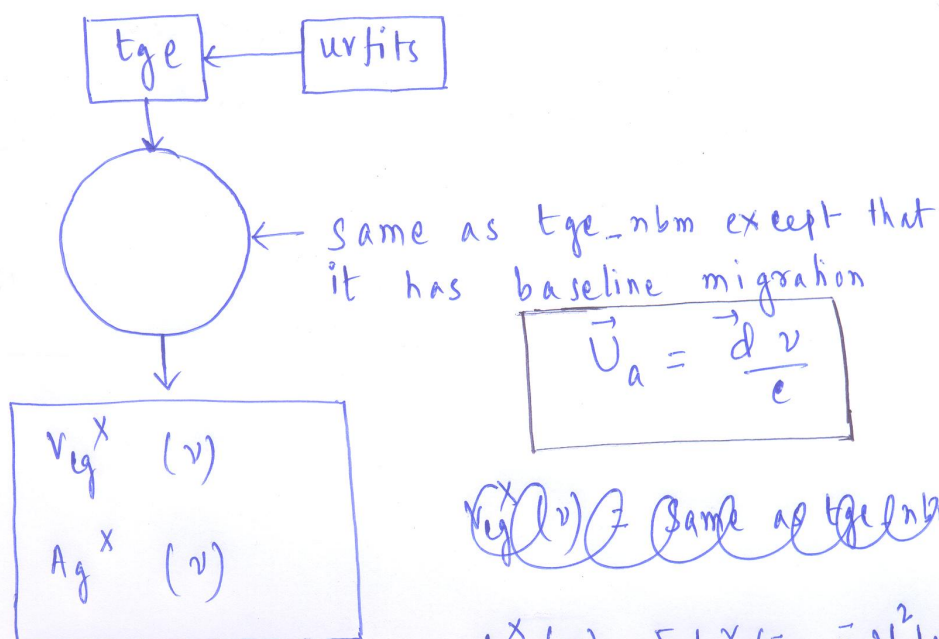 tge
uvfits
same as tge_nbm except that
it has baseline migration
U⃗_a = d⃗ ν / c
V_cg^x (ν)
A_g^x (ν)